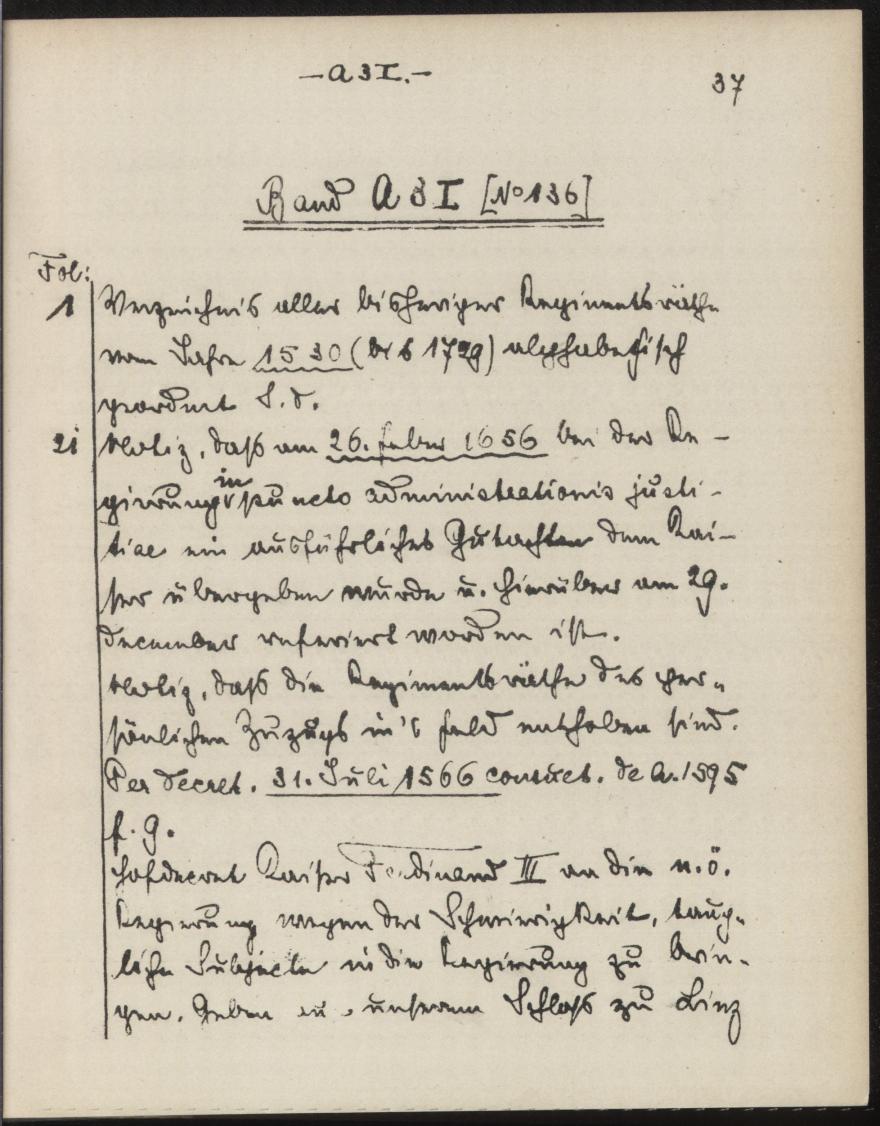 – A 3 I. –
37
Band A 3 I [No 136]
Fol:
1 Verzeichnis aller bisheriger Regimentsräthe
vom Jahre 1530 (bis 1729) alphabethisch
geordnet S. d.
21 Notiz, daß am 26. feber 1656 bei der Re-
gierung in puncto administrationis justi-
tiae ein ausführliches Gutachten dem Kai-
ser übergeben wurde u. hierüber am 29.
december referiert worden ist.
Notiz, daß die Regimentsräthe des per-
sönlichen Zuzugs in's feld enthoben sind.
Per decret. 31. Juli 1566 consuet. de A. 1595
f. g.
Hofdecret Kaiser Ferdinand III an die n. ö.
Regierung wegen der Schwierigkeit, taug-
liche Subjecte in die Regierung zu brin-
gen. Geben unserem Schloß zu Linz